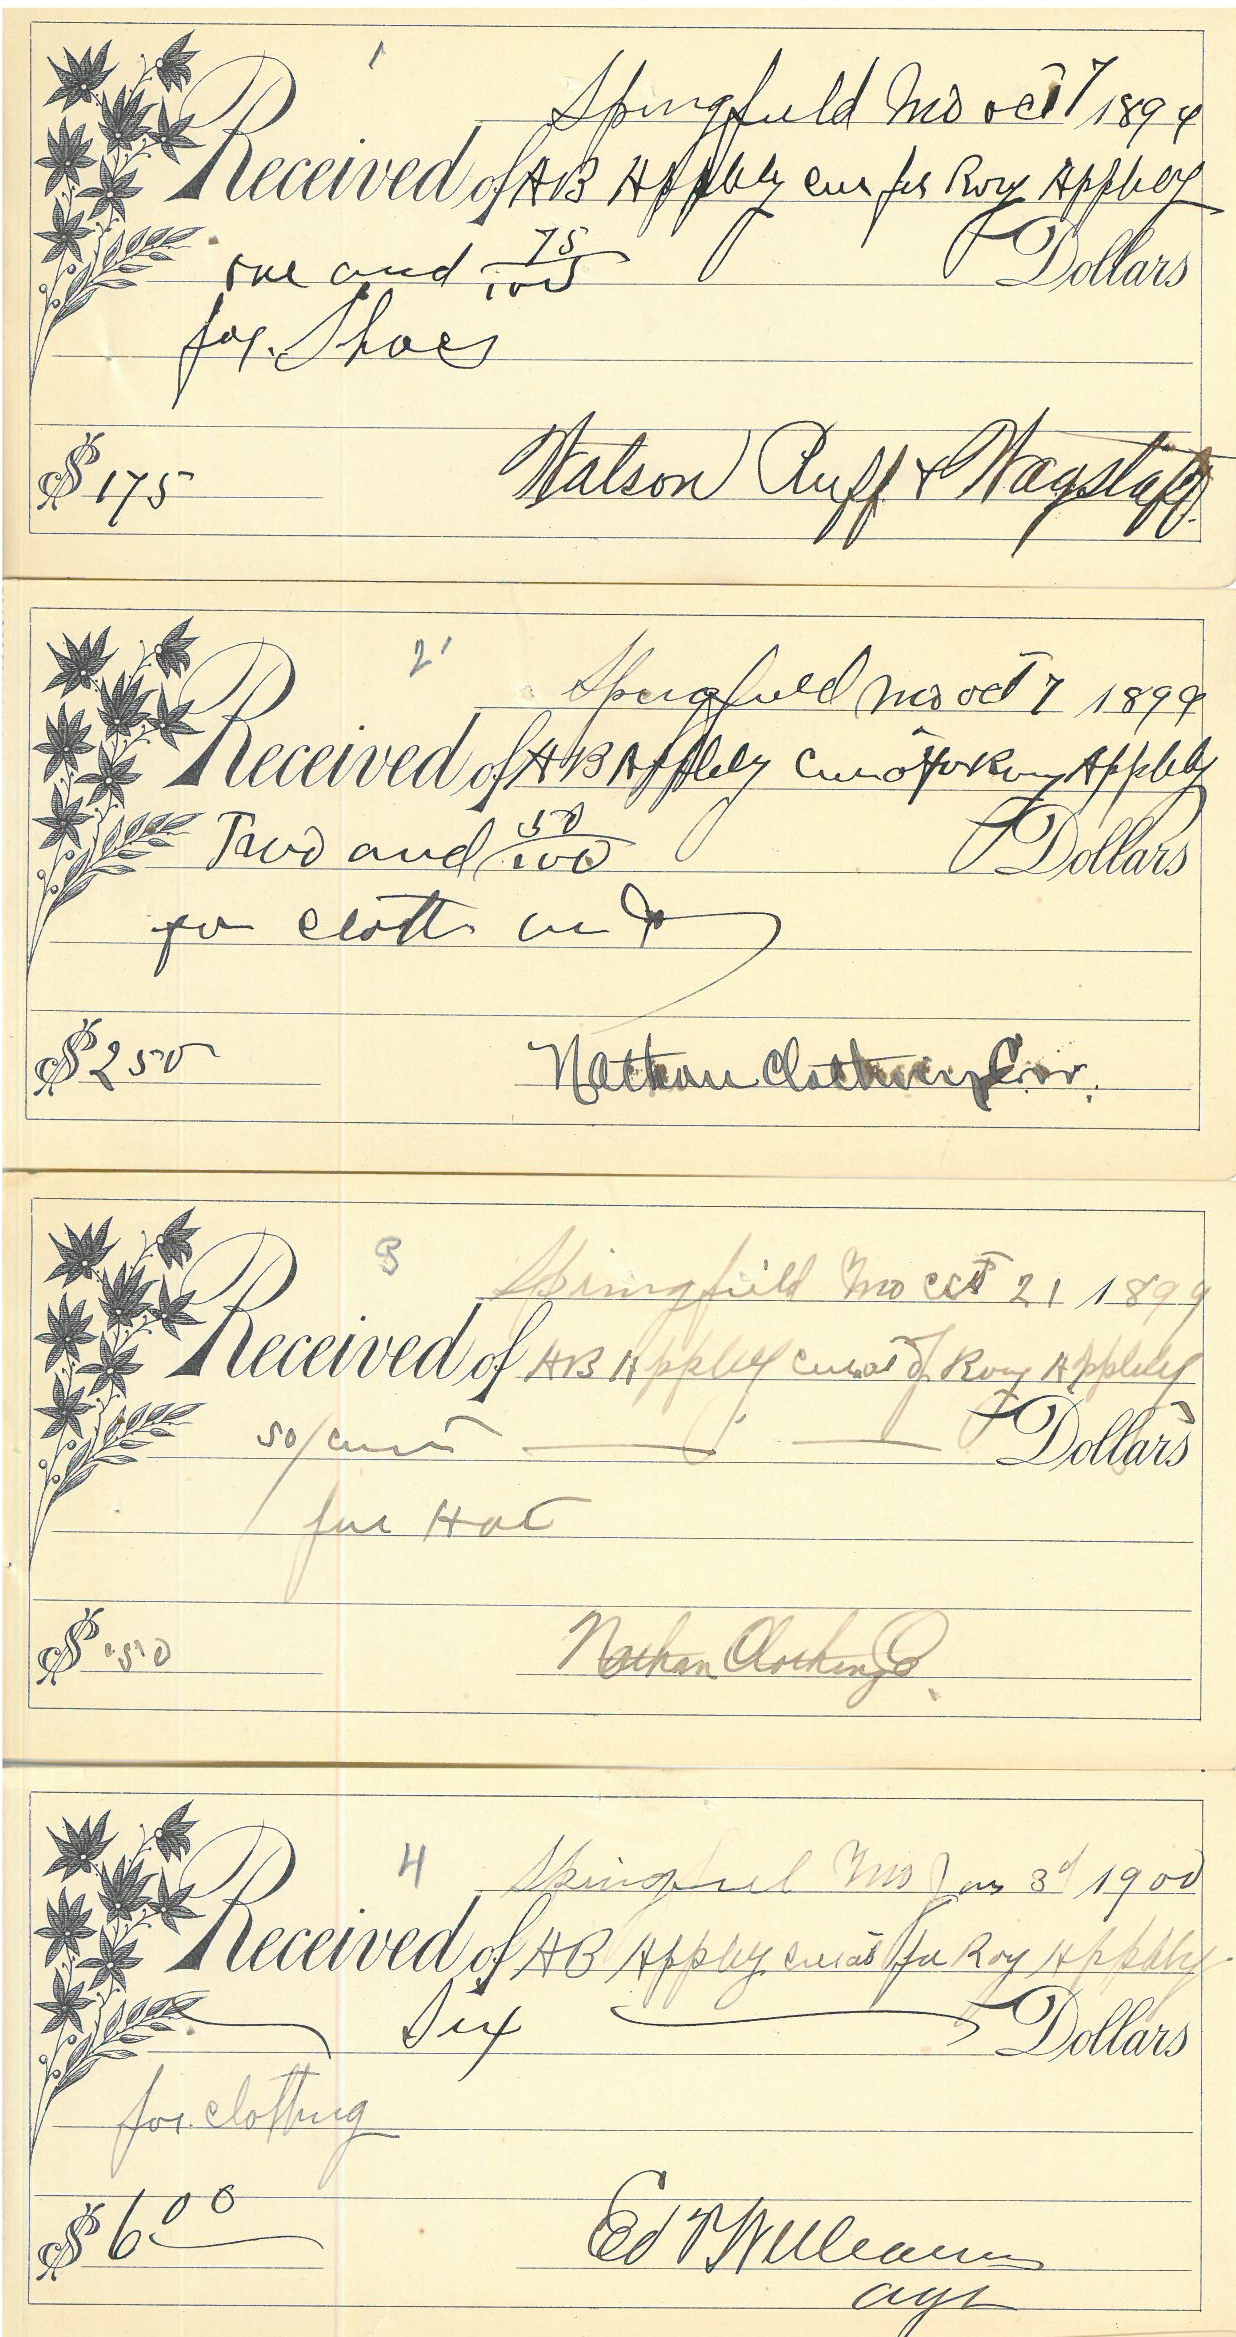 1
Springfield Mo Oct 7 1899
Received of AB Appleby cur for Roy Appleby
one and 75/100 Dollars
for Shoes
$ 175 Watson Ruff & Wagstaff
2
Springfield Mo Oct 7 1899
Received of AB Appleby Roy Appleby
Two and 50/100 Dollars
for cloth
$ 250 Nathan Clothing Co.
3
Springfield Mo Oct 21 1899
Received of AB Appleby curat of Roy Appleby
50/ cents Dollars
for Hat
$ .50 Nathan Clothing Co.
4
Springfield Mo Jan 3d 1900
Received of AB Appleby curat for Roy Appleby
Six Dollars
for clothing
$ 6.00 Ed V Williams
agt